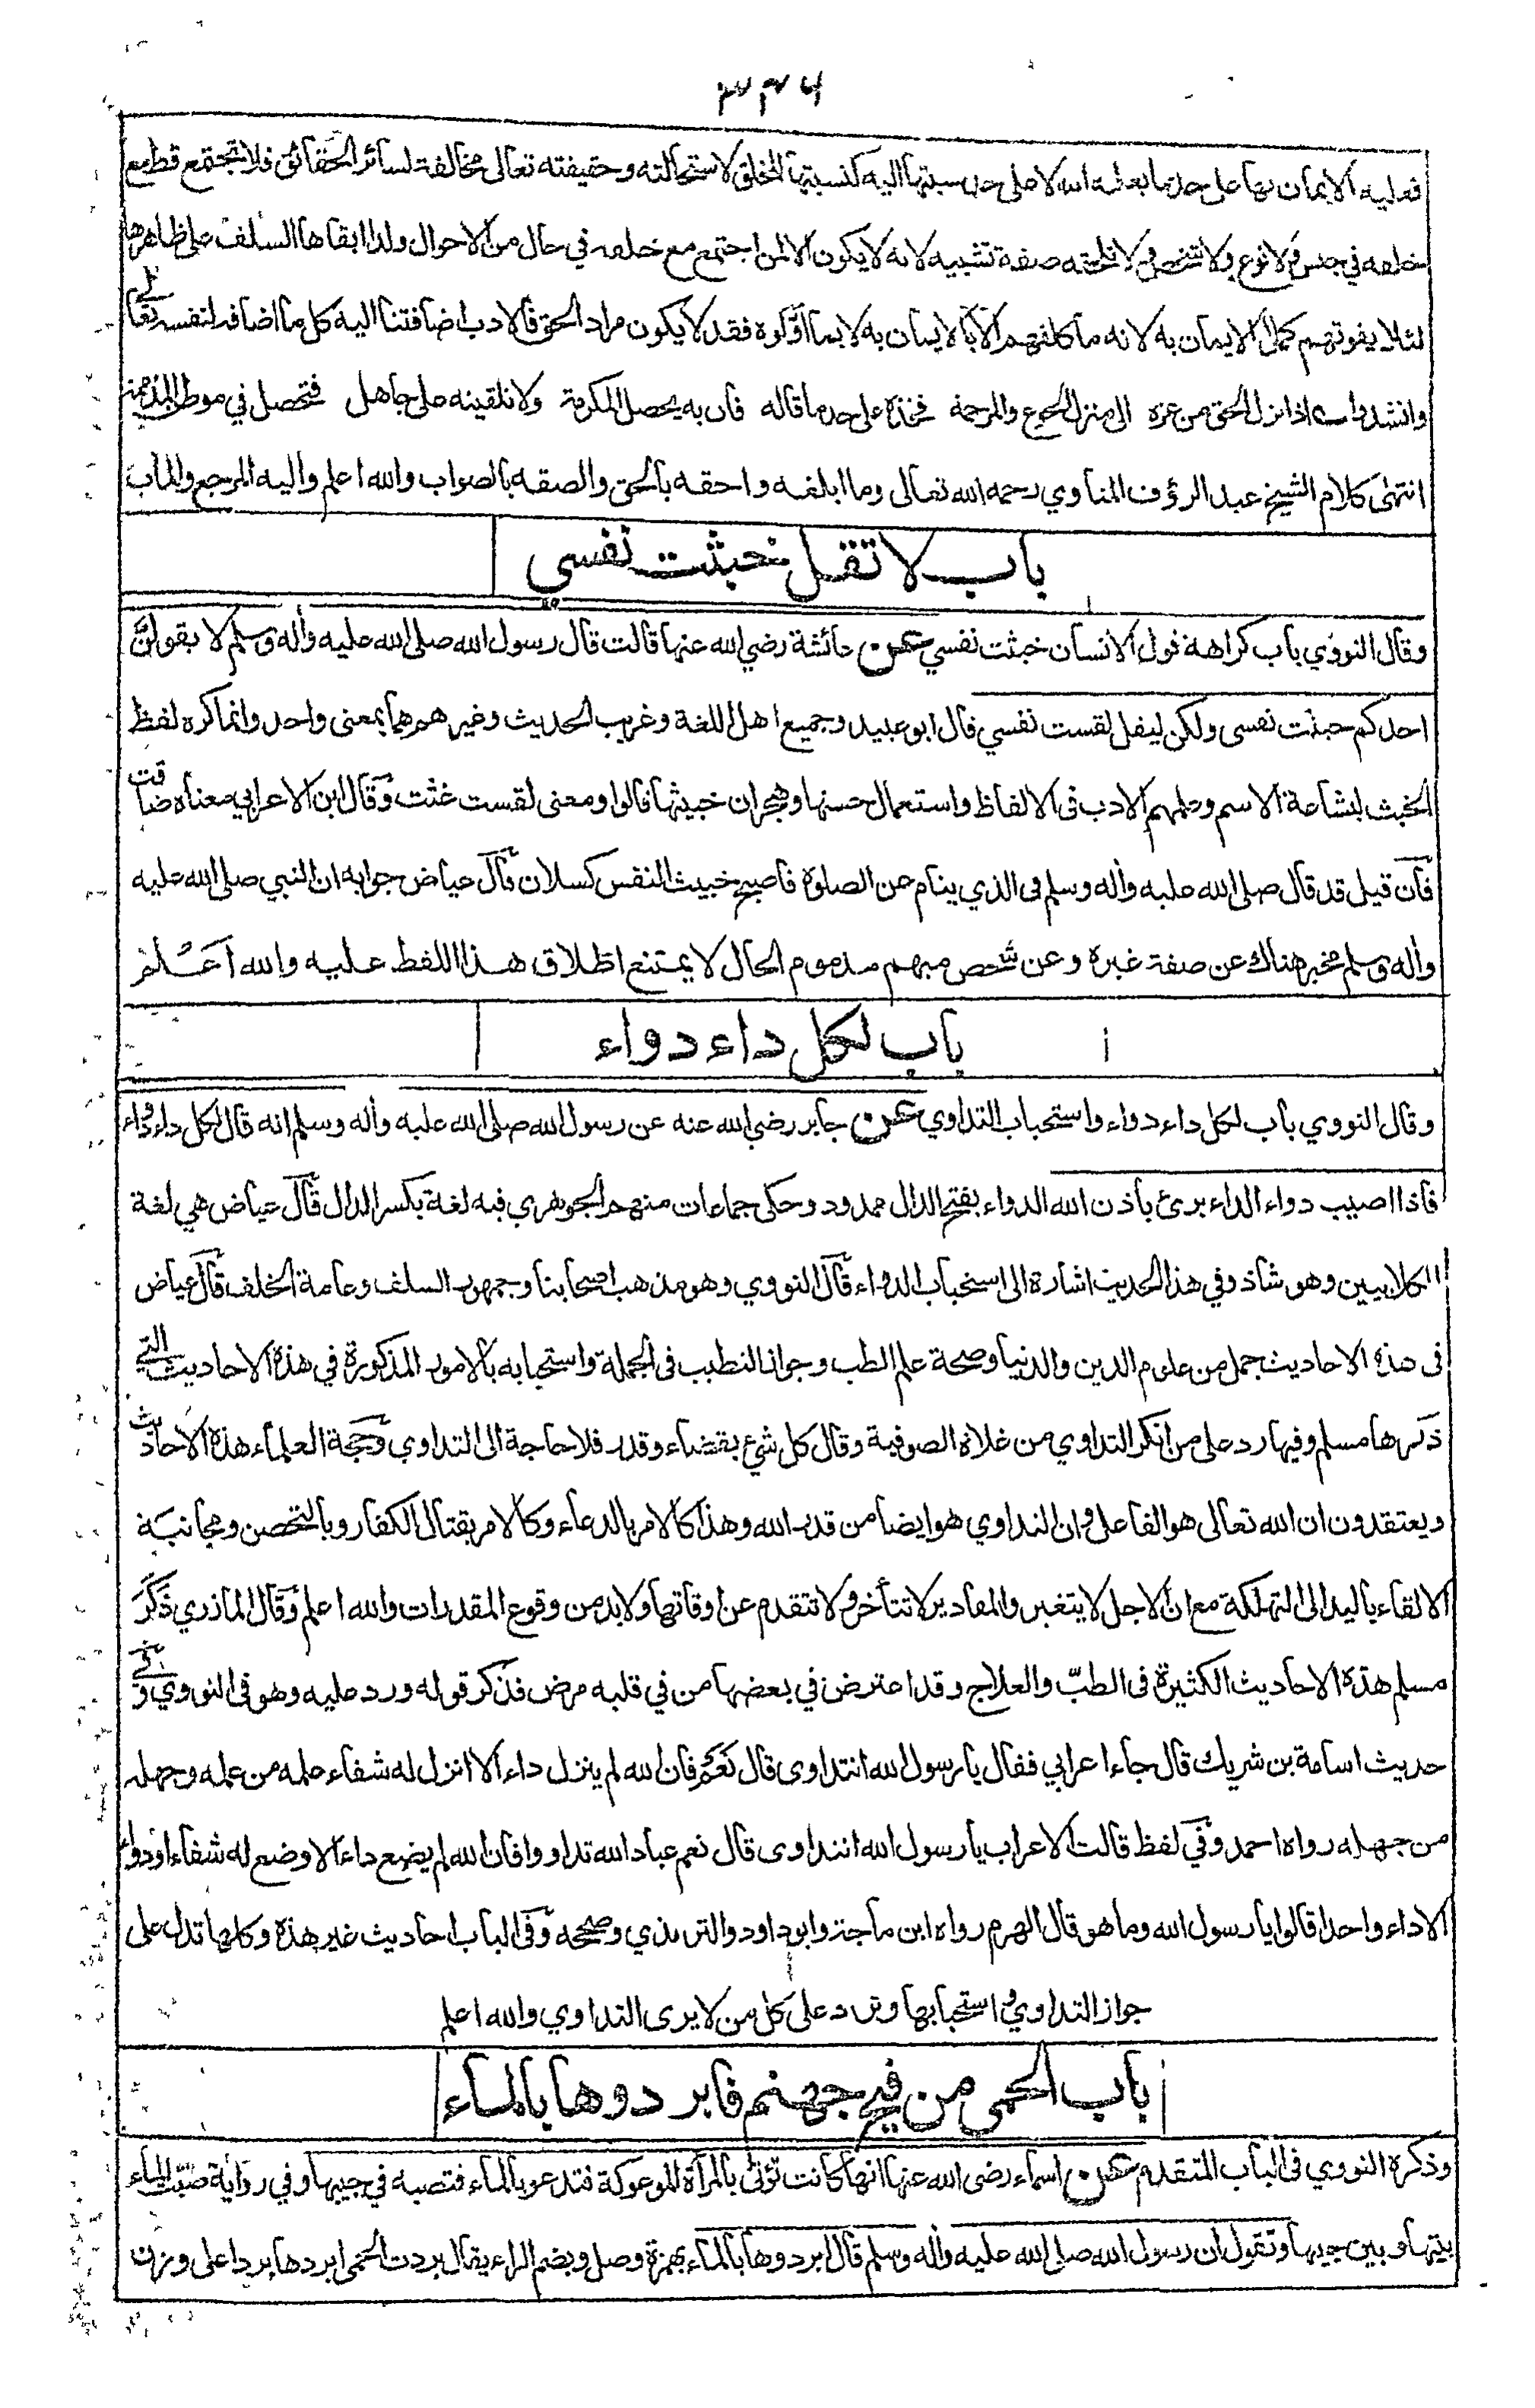 ٣٣٦
فعليه الايمان بها على حد ما يعلمه الله لا على حد نسبتها اليه كنسبتها للخلق لاستحالته وحقيقته تعالى مخالفة لسائر الحقائق فلا تجتمع قط مع
خلقه في جنس ولا نوع ولا شخص ولا تلحقه صفة تشبيه لانه لا يكون الا لمن اجتمع مع خلقه في حال من الاحوال ولذا ابقاها السلف على ظاهرها
لئلا يفوتهم كمال الايمان به لانه ما كلفهم الا بالايمان به لا بما اوّلوه فقد لا يكون مراد الحق فالادب اضافتنا اليه كل ما اضافه لنفسه تعالى
وانشدوا اذا نزل الحق من عزه الى منزل الجوع والمرحمة فخذه على حد ما قاله فان به يحصل المكرمة ولا تلقينه على جاهل فتحصل في موطن المذممة
انتهى كلام الشيخ عبد الرؤف المناوي رحمه الله تعالى وما ابلغه واحقه بالحق والصقه بالصواب والله اعلم واليه المرجع والمآب
باب لا تقل خبثت نفسي
وقال النووي باب كراهة قول الانسان خبثت نفسي عن عائشة رضي الله عنها قالت قال رسول الله صلى الله عليه وأله وسلم لا يقولنّ
احدكم خبثت نفسى ولكن ليقل لقست نفسي قال ابو عبيد وجميع اهل اللغة وغريب الحديث وغيرهم هما بمعنى واحد وانما كره لفظ
الخبث لبشاعة الاسم وعلمهم الادب فى الالفاظ واستعمال حسنها وهجران خبيثها قالوا ومعنى لقست غثت وقال ابن الاعرابي معناه ضاقت
فان قيل قد قال صلى الله عليه وأله وسلم فى الذي ينام عن الصلوة فاصبح خبيث النفس كسلان قال عياض جوابه ان النبي صلى الله عليه
وأله وسلم مخبر هناك عن صفة غيره وعن شخص مبهم مذموم الحال لا يمتنع اطلاق هذا اللفظ عليه والله اعلم
باب لكل داء دواء
وقال النووي باب لكل داء دواء واستحباب التداوي عن جابر رضي الله عنه عن رسول الله صلى الله عليه وأله وسلم انه قال لكل داء دواء
فاذا اصيب دواء الداء برئ باذن الله الدواء بفتح الدال ممدود وحكى جماعات منهم الجوهري فيه لغة بكسر الدال قال عياض هي لغة
الكلابيين وهو شاذ وفي هذا الحديث اشارة الى استحباب الدواء قال النووي وهو مذهب اصحابنا وجمهور السلف وعامة الخلف قال عياض
فى هذه الاحاديث جمل من علوم الدين والدنيا وصحة علم الطب وجواز التطبب فى الجملة واستحبابه بالامور المذكورة في هذه الاحاديث التي
ذكرها مسلم وفيها رد على من انكر التداوي من غلاة الصوفية وقال كل شيء بقضاء وقدر فلا حاجة الى التداوي وحجة العلماء هذه الاحاديث
ويعتقدون ان الله تعالى هو الفاعل وان التداوي هو ايضا من قدر الله وهذا كالامر بالدعاء وكالامر بقتال الكفار وبالتحصن ومجانبة
الالقاء باليد الى التهلكة مع ان الاجل لا يتغير والمقادير لا تتأخر ولا تتقدم عن اوقاتها ولا بد من وقوع المقدرات والله اعلم وقال المازري ذكر
مسلم هذه الاحاديث الكثيرة فى الطبّ والعلاج وقد اعترض في بعضها من في قلبه مرض فذكر قوله ورد عليه وهو فى النووي وفي
حديث اسامة بن شريك قال جاء اعرابي فقال يا رسول الله انتداوى قال نعم فان الله لم ينزل داء الا انزل له شفاء علمه من علمه وجهله
من جهله رواه احمد وفي لفظ قالت الاعراب يا رسول الله انتداوى قال نعم عباد الله تداووا فان الله لم يضع داء الا وضع له شفاء اودواء
الا داء واحدا قالوا يا رسول الله وما هو قال الهرم رواه ابن ماجة وابو داود والترمذي وصححه وفى الباب احاديث غير هذه وكلها تدل على
جواز التداوي واستحبابها وترد على كل من لا يرى التداوي والله اعلم
باب الحمى من فيح جهنم فابردوها بالماء
وذكره النووي فى الباب المتقدم عن اسماء رضى الله عنها انها كانت تؤتى بالمرأة الموعوكة فتدعو بالماء فتصبه في جيبها وفي رواية صبّت الماء
بينها وبين جيبها وتقول ان رسول الله صلى الله عليه وأله وسلم قال ابردوها بالماء بهمزة وصل وبضم الراء يقال بردت الحمى ابردها بردا على وزن